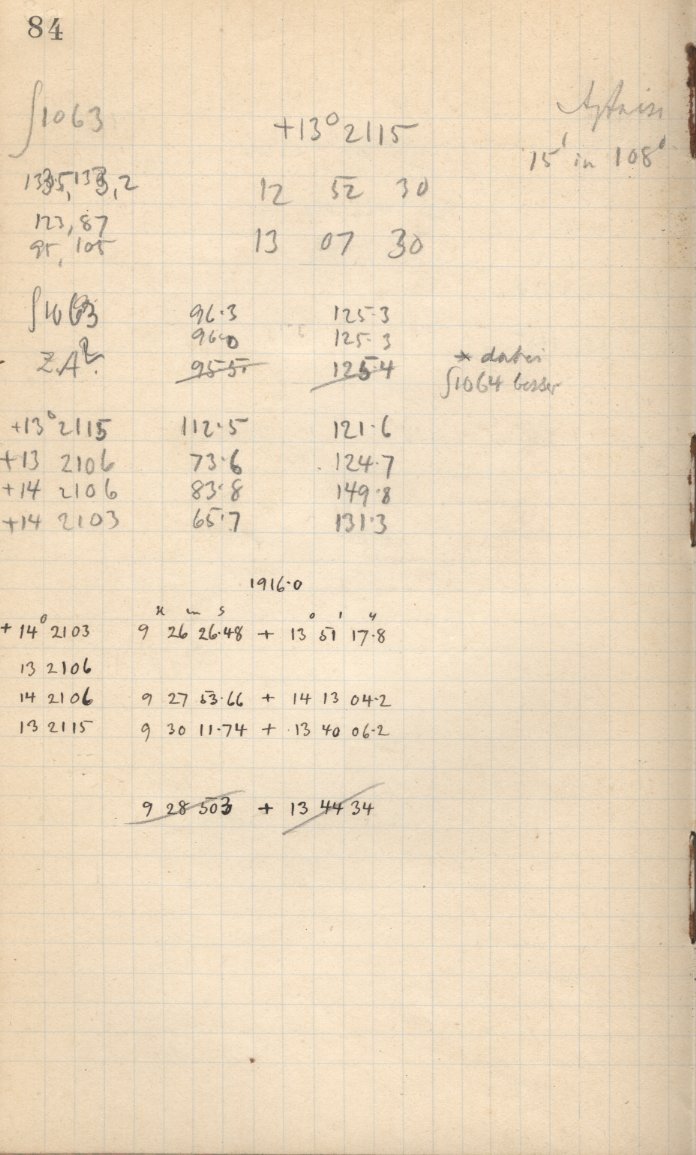 84
∫1063 +13° 2115
15' in 108°
12 52 30
123, 87
95, 105 13 07 30
∫1063 96.3 125.3
96.0 125.3
ZA 95.5 125.4 * dabei
∫1064 besser
+13° 2115 112.5 121.6
+13 2106 73.6 124.7
+14 2106 83.8 149.8
+14 2103 65.7 131.3
1916.0
h m s ° ' "
+14° 2103 9 26 26.48 + 13 51 17.8
13 2106
14 2106 9 27 53.66 + 14 13 04.2
13 2115 9 30 11.74 + 13 40 06.2
9 28 503 + 13 44 34